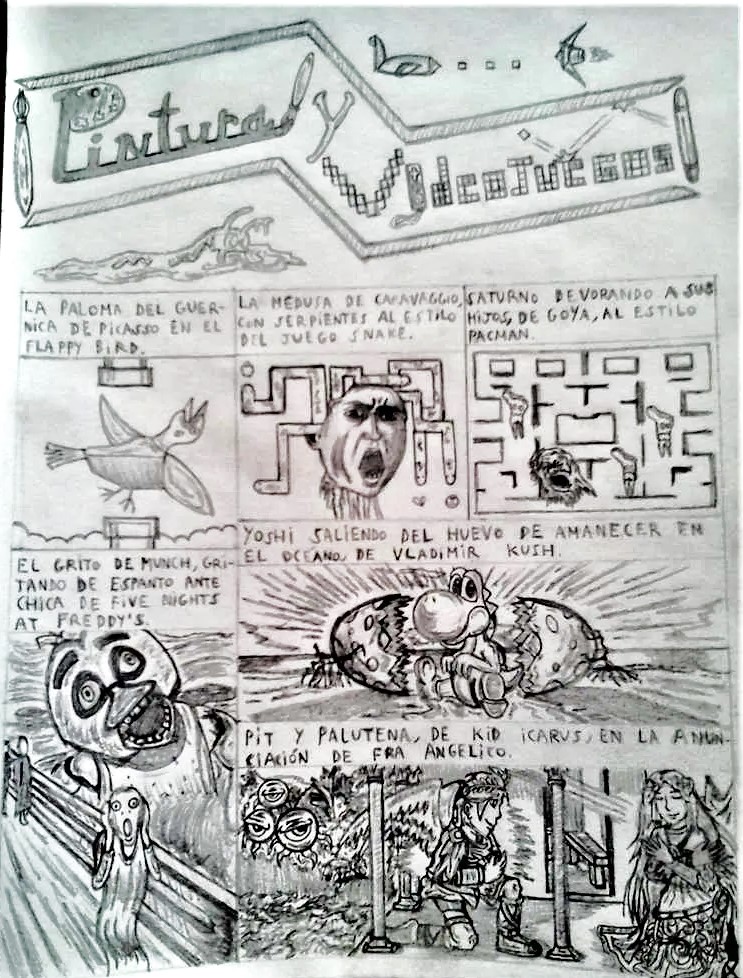 Pintura y
VideoJuegos
LA PALOMA DEL GUER-
NICA DE PICASSO EN EL
FLAPPY BIRD.
LA MEDUSA DE CARAVAGGIO,
CON SERPIENTES AL ESTILO
DEL JUEGO SNAKE.
SATURNO DEVORANDO A SUS
HIJOS, DE GOYA, AL ESTILO
PACMAN.
EL GRITO DE MUNCH, GRI-
TANDO DE ESPANTO ANTE
CHICA DE FIVE NIGHTS
AT FREDDY'S.
YOSHI SALIENDO DEL HUEVO DE AMANECER EN
EL OCEANO, DE VLADIMIR KUSH.
PIT Y PALUTENA, DE KID ICARUS, EN LA ANUN-
CIACIÓN DE FRA ANGELICO.